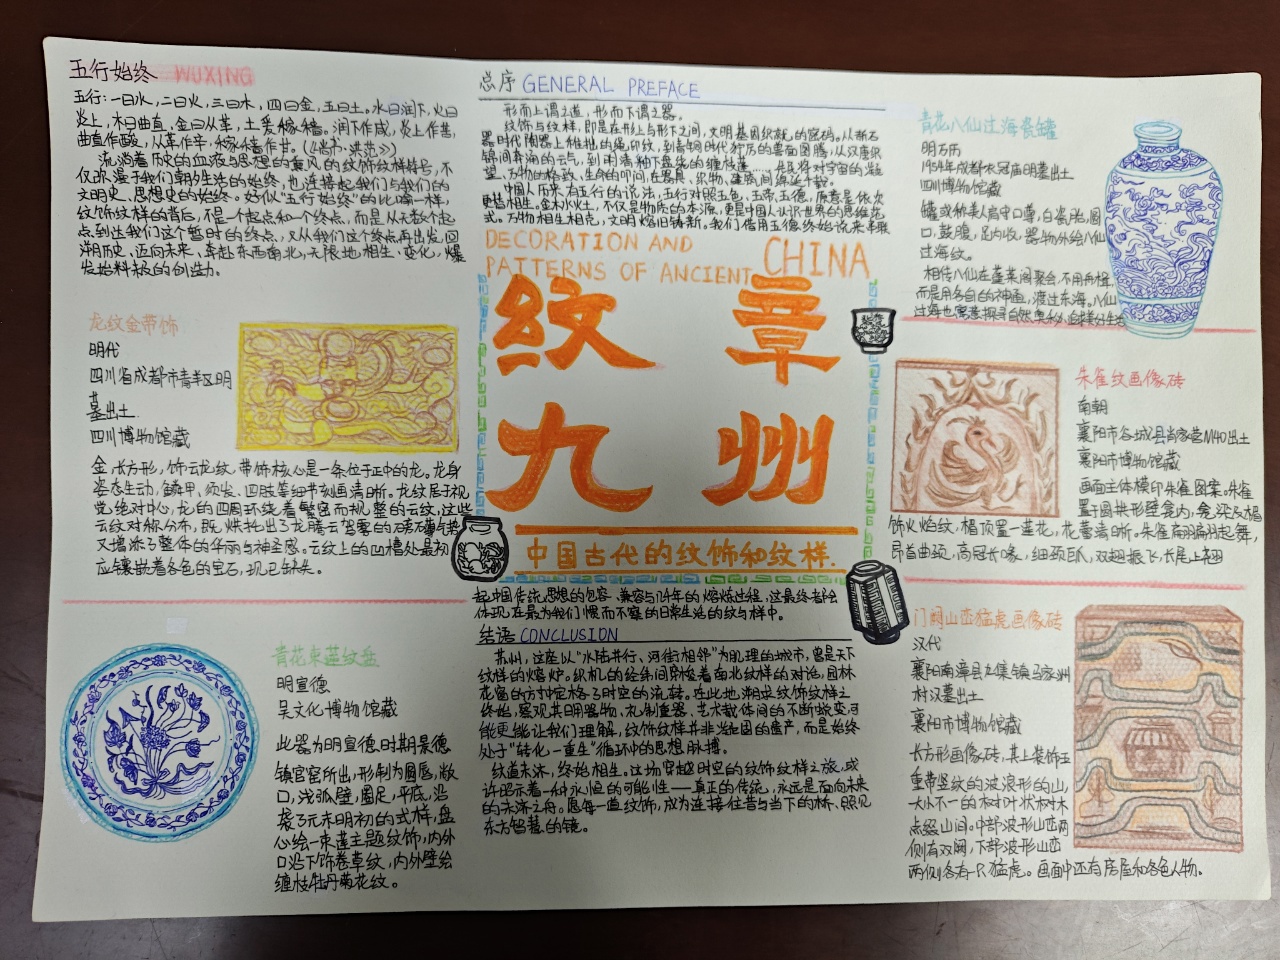 五行始终 WUXING
五行：一曰水，二曰火，三曰木，四曰金，五曰土。水曰润下，火曰
炎上，木曰曲直，金曰从革，土爰稼穑。润下作咸，炎上作苦，
曲直作酸，从革作辛，稼穑作甘。(《尚书·洪范》)
流淌着历史的血液与思想的熏风的纹饰纹样符号，不
仅弥漫于我们朝夕生活的始终，也连接起我们与我们的
文明史、思想史的始终。好似“五行始终”的比喻一样，
纹饰纹样的背后，不是一个起点和一个终点，而是从无数个起
点到达我们这个暂时的终点，又从我们这个终点再出发，回
溯历史，迈向未来，奔赴东西南北，无限地相生、变化，爆
发始料未极的创造力。
龙纹金带饰
明代
四川省成都市青羊区明
墓出土
四川博物馆藏
金，长方形，饰云龙纹，带饰核心是一条位于正中的龙。龙身
姿态生动，鳞甲、须发、四肢等细节刻画清晰。龙纹居于视
觉绝对中心，龙的四周环绕着繁密而规整的云纹，这些
云纹对称分布，既烘托出了龙腾云驾雾的
又增添了整体的华丽与神圣感。云纹上的凹槽处最初
应镶嵌着各色的宝石，现已缺失。
青花束莲纹盘
明宣德
吴文化博物馆藏
此器为明宣德时期景德
镇官窑所出，形制为圆唇，敞
口，浅弧壁，圈足，平底，沿
袭了元末明初的式样，盘
心绘一束莲主题纹饰，内外
口沿下饰卷草纹，内外壁绘
缠枝牡丹菊花纹。
总序 GENERAL PREFACE
形而上谓之道，形而下谓之器。
纹饰与纹样，即是在形上与形下之间，文明基因织就的密码，从新石
器时代陶器上稚拙的绳印纹，到青铜时代狞厉的兽面图腾，从汉唐织
锦间奔涌的云气，到明清釉下盘绕的缠枝莲，
望、万物的格致、生命的叩问，在器具、织物、建筑间绵延千载。
中国人历来有五行的说法，五行对照五色、五帝、五德，原意是依次
更替相生。金木水火土，不仅是物质的本源，更是中国人认识世界的思维范
式。万物相生相克，文明熔旧铸新。我们借用五德终始说来串联
DECORATION AND
PATTERNS OF ANCIENT CHINA
纹 章
九 州
中国古代的纹饰和纹样.
起中国传统思想的包容、兼容与1+1>2的熔炼过程，这最终都会
体现在最为我们惯而不察的日常生活的纹与样中。
结语 CONCLUSION
苏州，这座以“水陆并行、河街相邻”为肌理的城市，曾是天下
纹样的熔炉。织机的经纬间穿梭着南北纹样的对话，园林
花窗的方寸中定格了时空的流转。在此地溯边纹饰纹样之
终始，察观其日用器物、礼制重器、艺术载体间的不断蜕变，可
能更能让我们理解，纹饰纹样并非凝固的遗产，而是始终
处于“转化—重生”循环中的思想脉搏。
纹道未济，终始相生。这场穿越时空的纹饰纹样之旅，或
许昭示着一种永恒的可能性——真正的传统，永远是面向未来
的未济之舟。愿每一道纹饰，成为连接往昔与当下的桥、照见
东方智慧的镜。
青花八仙过海瓷罐
明万历
1954年成都衣冠庙明墓出土
四川博物馆藏
罐或称美人肩守口尊，白瓷胎，圆
口，鼓腹，足内收，器物外绘八仙
过海纹。
相传八仙在蓬莱阁聚会，不用舟楫，
而是用各自的神通，渡过东海。八仙
过海也寓意探寻自然奥秘
朱雀纹画像砖
南朝
襄阳市谷城县肖家营M40出土
襄阳市博物馆藏
画面主体模印朱雀图案。朱雀
置于圆拱形壁龛内，龛梁及楣
饰火焰纹，楣顶置一莲花，花蕾清晰。朱雀翩翩起舞，
昂首曲颈，高冠长喙，细颈巨爪，双翅振飞，长尾上翘
门阙山峦猛虎画像砖
汉代
襄阳南漳县九集镇马家洲
村汉墓出土
襄阳市博物馆藏
长方形画像砖，其上装饰五
重带竖纹的波浪形的山，
大小不一的树叶状树木
点缀山间。中部波形山峦两
侧有双阙，下部波形山峦
两侧各有一只猛虎。画面中还有房屋和各色人物。